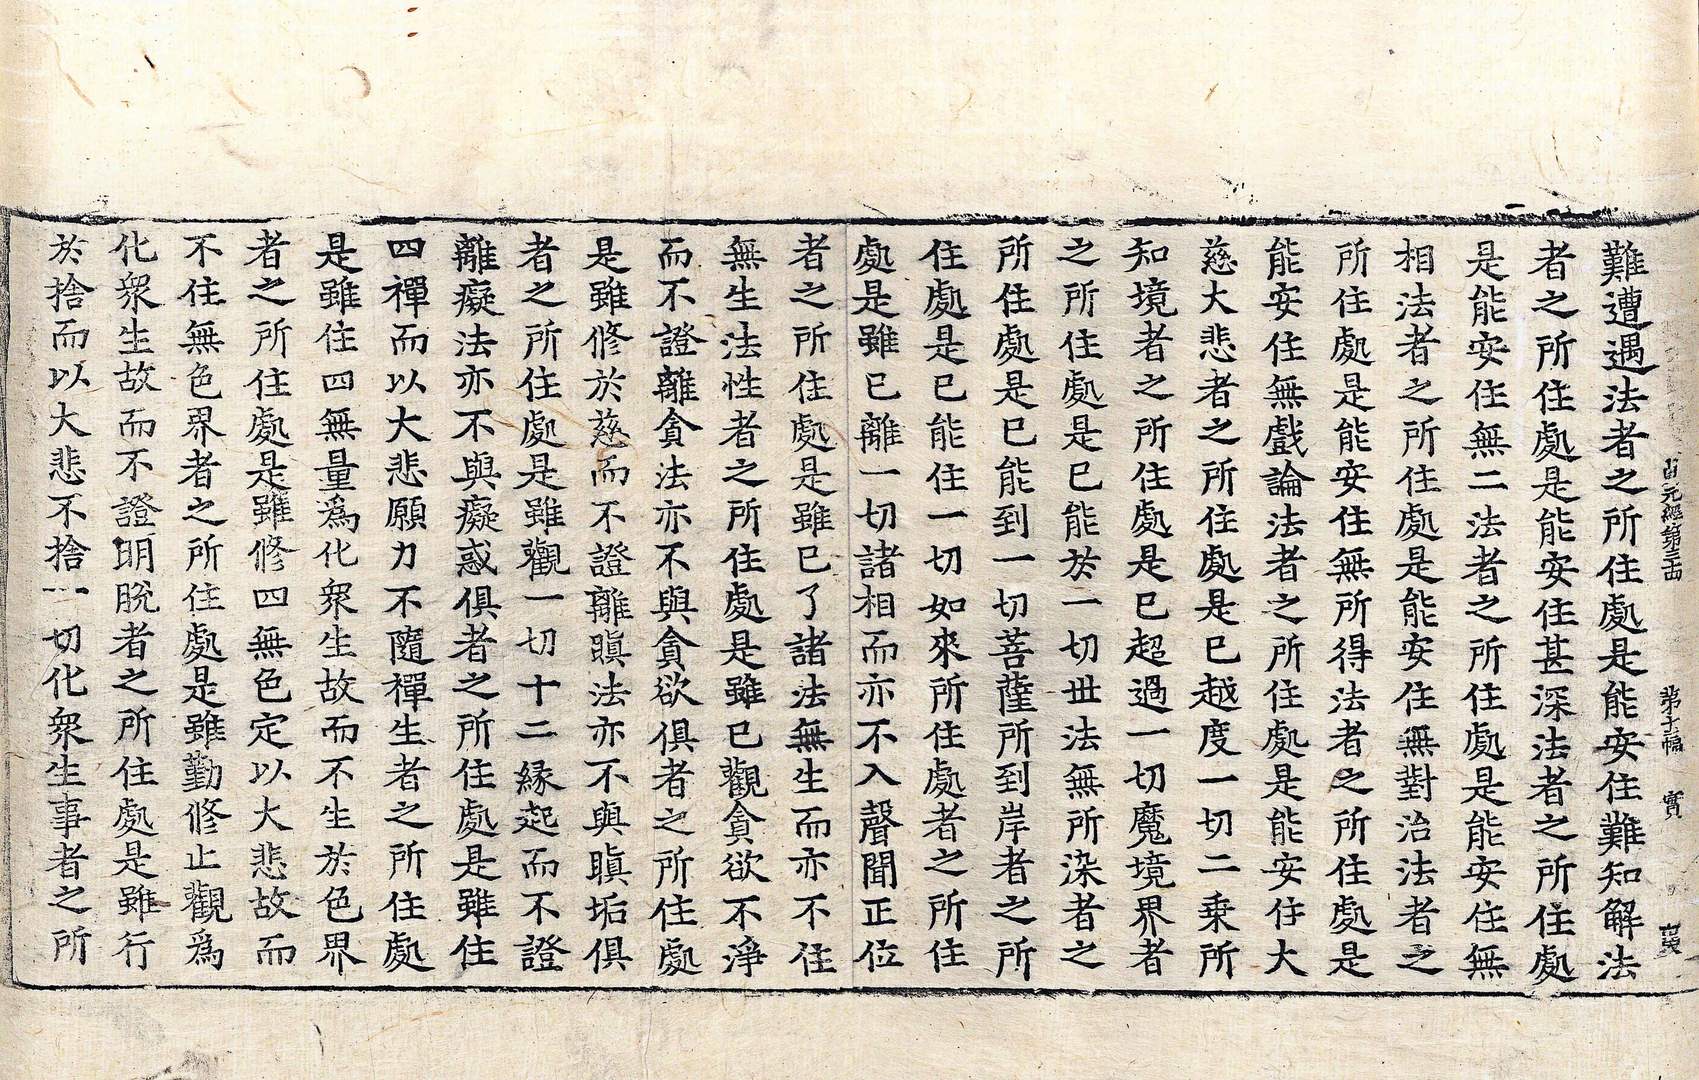 難遭遇法者之所住處是能安住難知解法
者之所住處是能安住甚深法者之所住處
是能安住無二法者之所住處是能安住無
相法者之所住處是能安住無對治法者之
所住處是能安住無所得法者之所住處是
能安住無戲論法者之所住處是能安住大
慈大悲者之所住處是已越度一切二乗所
知境者之所住處是已超過一切魔境界者
之所住處是已能於一切世法無所染者之
所住處是已能到一切菩薩所到岸者之所
住處是已能住一切如來所住處者之所住
處是雖已離一切諸相而亦不入聲聞正位
者之所住處是雖已了諸法無生而亦不住
無生法性者之所住處是雖已觀貪欲不淨
而不證離貪法亦不與貪欲俱者之所住處
是雖修於慈而不證離瞋法亦不與瞋垢俱
者之所住處是雖觀一切十二緣起而不證
離癡法亦不與癡惑俱者之所住處是雖住
四禪而以大悲願力不隨禪生者之所住處
是雖住四無量爲化衆生故而不生於色界
者之所住處是雖修四無色定以大悲故而
不住無色界者之所住處是雖勤修止觀爲
化衆生故而不證明脫者之所住處是雖行
於捨而以大悲不捨一切化衆生事者之所